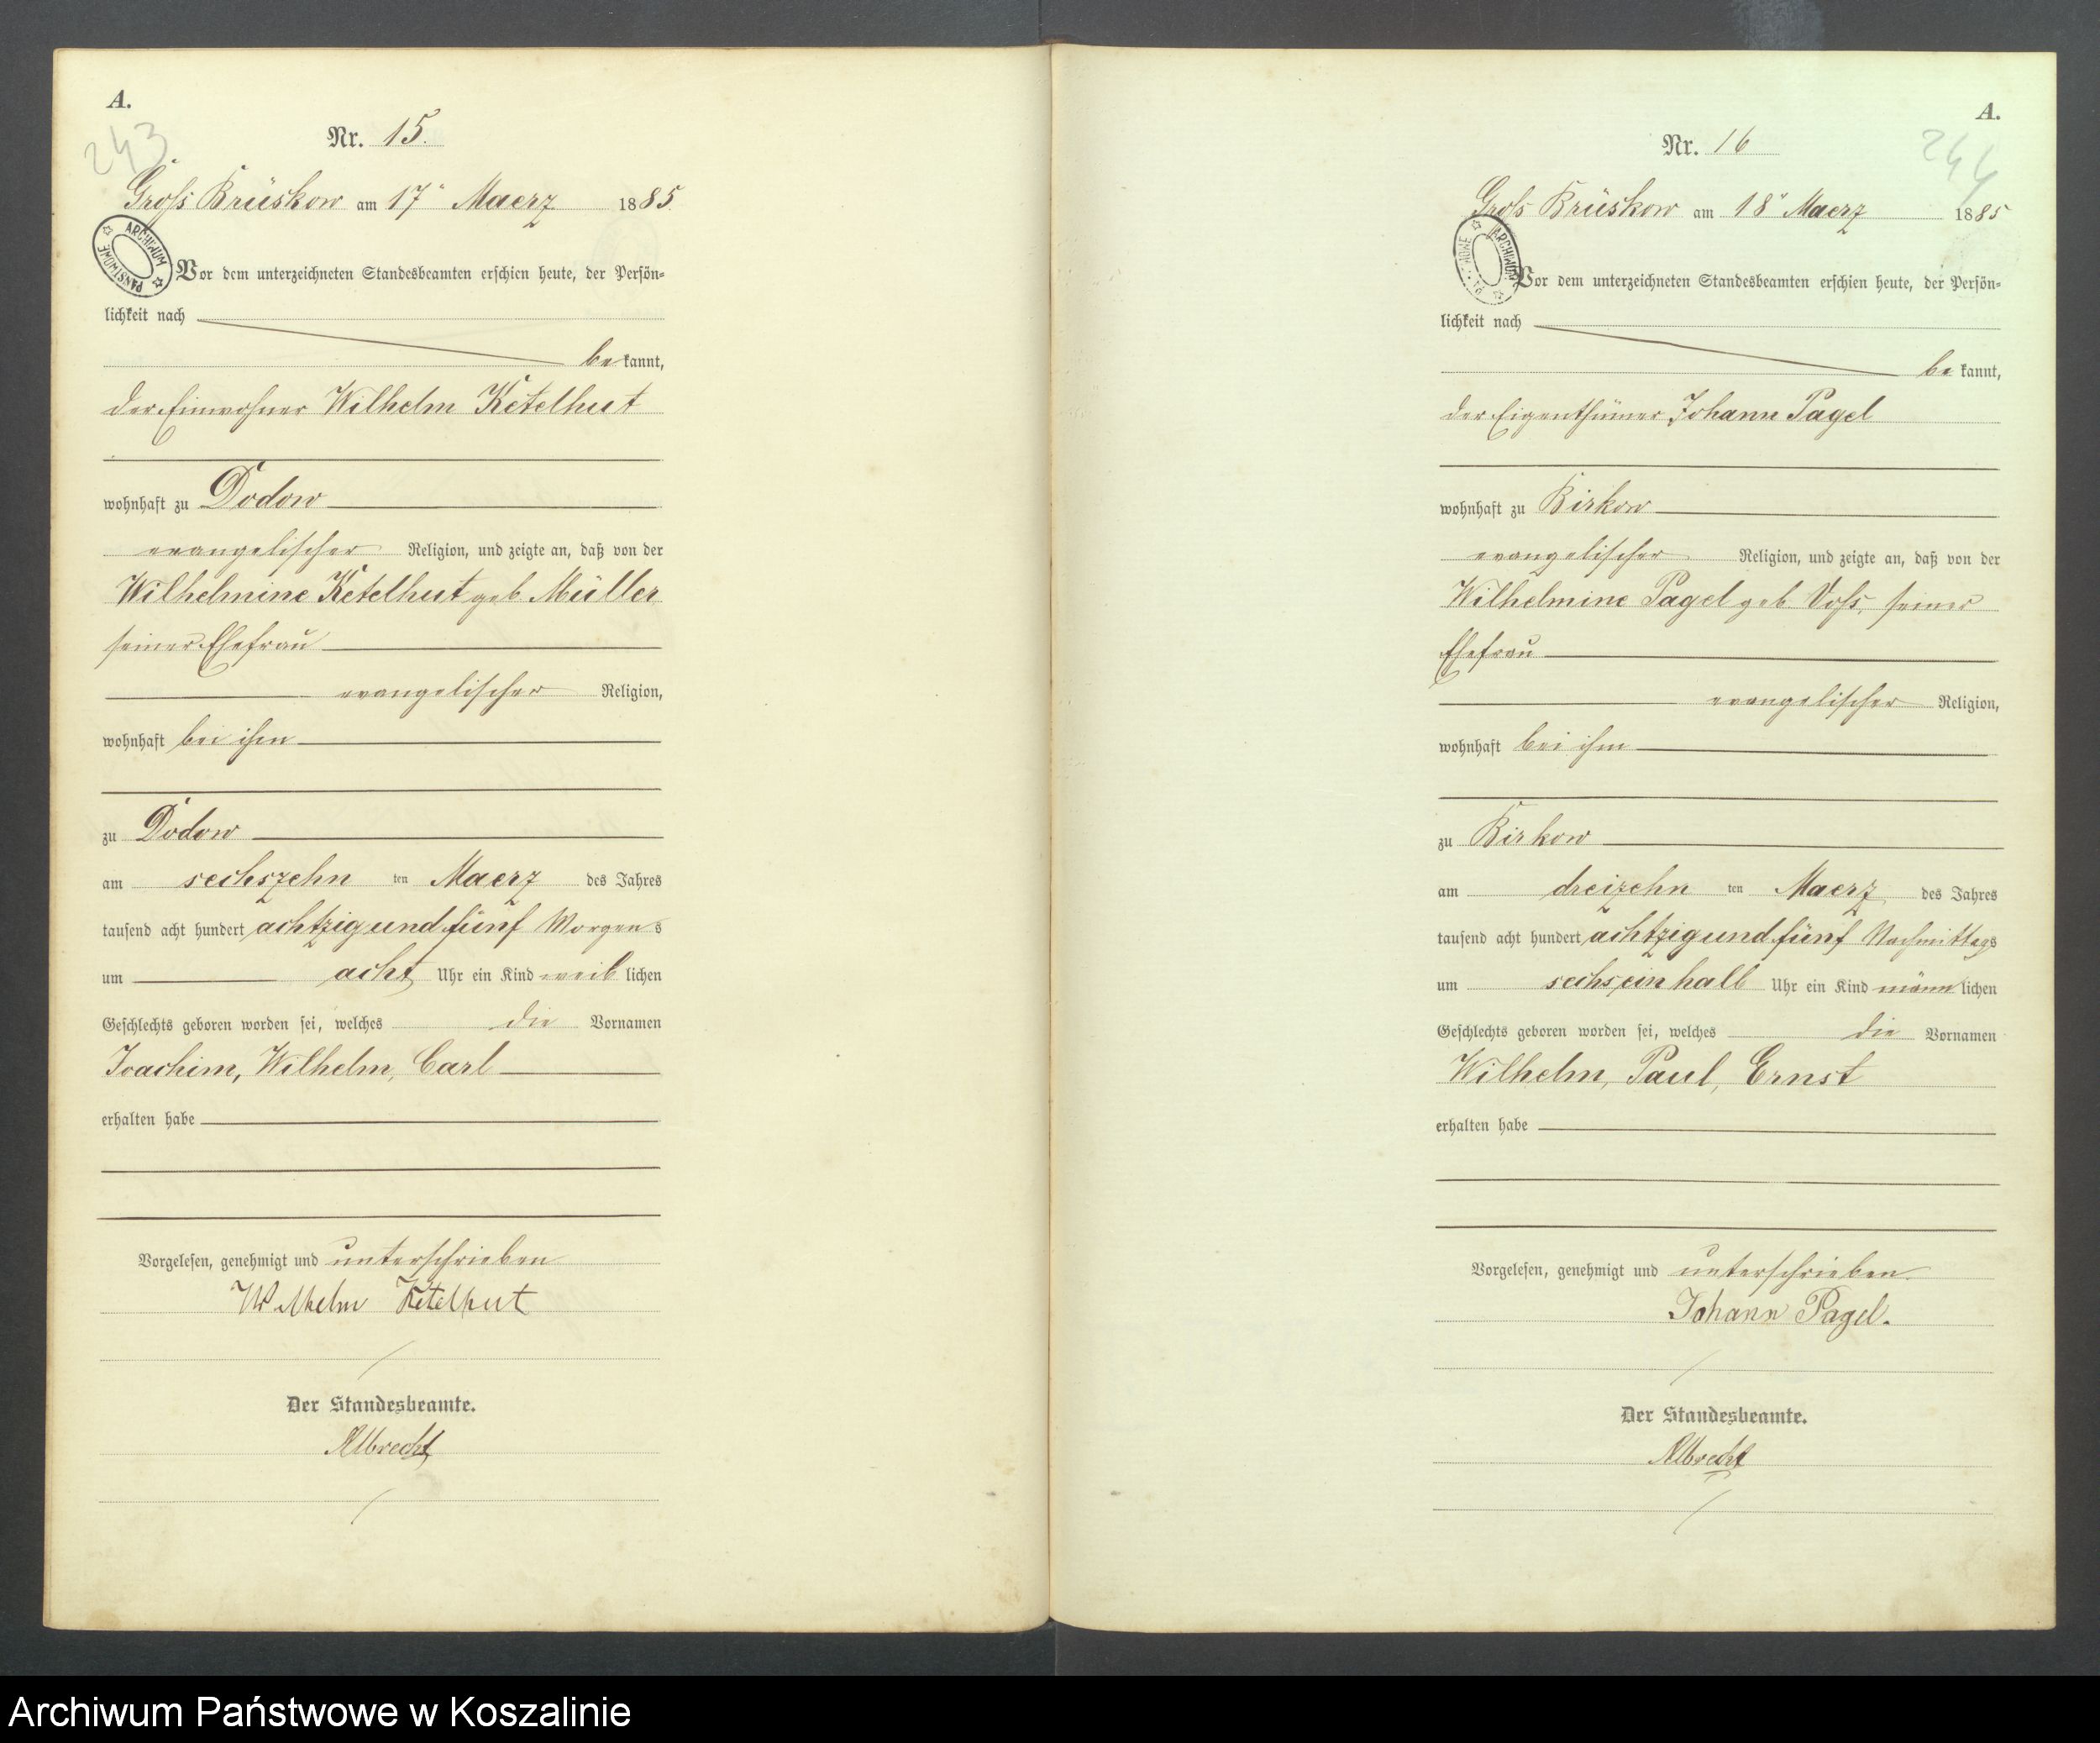 A.
243
Nr. 15.
Gross Brüskow am 17ᵗ Maerz 1885.
ARCHIWUM PAŃSTWOWE
Vor dem unterzeichneten Standesbeamten erschien heute, der Persön-
lichkeit nach
be kannt,
der Einwohner Wilhelm Ketelhut
wohnhaft zu Dodow
evangelischer Religion, und zeigte an, daß von der
Wilhelmine Ketelhut geb. Müller
seiner Ehefrau
evangelischer Religion,
wohnhaft bei ihm
zu Dodow
am sechszehn ten Maerz des Jahres
tausend acht hundert achtzig und fünf Morgens
um acht Uhr ein Kind weib lichen
Geschlechts geboren worden sei, welches die Vornamen
Joachim, Wilhelm, Carl
erhalten habe
Vorgelesen, genehmigt und unterschrieben
Wilhelm Ketelhut
Der Standesbeamte.
Albrecht
A.
244
Nr. 16
Gross Brüskow am 18ᵗ Maerz 1885
ARCHIWUM
Vor dem unterzeichneten Standesbeamten erschien heute, der Persön-
lichkeit nach
be kannt,
der Eigenthümer Johann Pagel
wohnhaft zu Birkow
evangelischer Religion, und zeigte an, daß von der
Wilhelmine Pagel geb. Voss, seiner
Ehefrau
evangelischer Religion,
wohnhaft bei ihm
zu Birkow
am dreizehn ten Maerz des Jahres
tausend acht hundert achtzig und fünf Nachmittags
um sechseinhalb Uhr ein Kind männ lichen
Geschlechts geboren worden sei, welches die Vornamen
Wilhelm, Paul, Ernst
erhalten habe
Vorgelesen, genehmigt und unterschrieben.
Johann Pagel.
Der Standesbeamte.
Albrecht
Archiwum Państwowe w Koszalinie